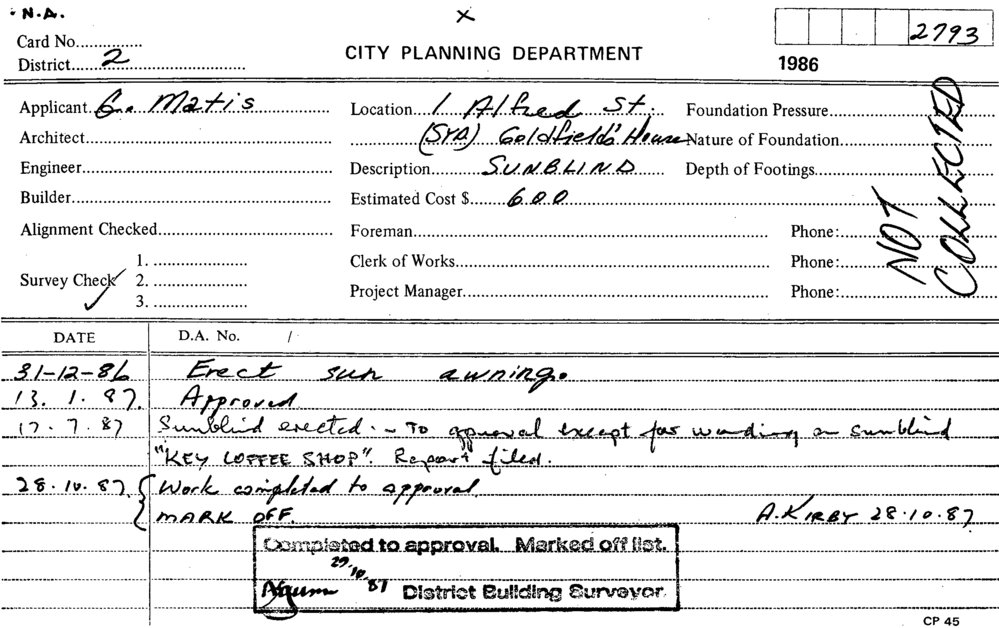 N.A.
x
2793
Card No.
District 2
CITY PLANNING DEPARTMENT
1986
Applicant G. Matis
Location 1 Alfred St.
Foundation Pressure
Architect
(STA) Goldfield's House
Nature of Foundation
Engineer
Description SUNBLIND
Depth of Footings
Builder
Estimated Cost $ 600
NOT COLLECTED
Alignment Checked
Foreman
Phone:
Survey Check
1.
2.
3.
Clerk of Works
Phone:
Project Manager
Phone:
DATE
D.A. No. /
31-12-86 Erect sun awning.
13. 1. 87. Approved
17. 7. 87 Sunblind erected. - To approval except for wording on sunblind
"KEY COFFEE SHOP". Report filed.
28. 10. 87. Work completed to approval
MARK OFF. A. KIRBY 28.10.87
Completed to approval. Marked off list.
29.10.87
District Building Surveyor.
CP 45